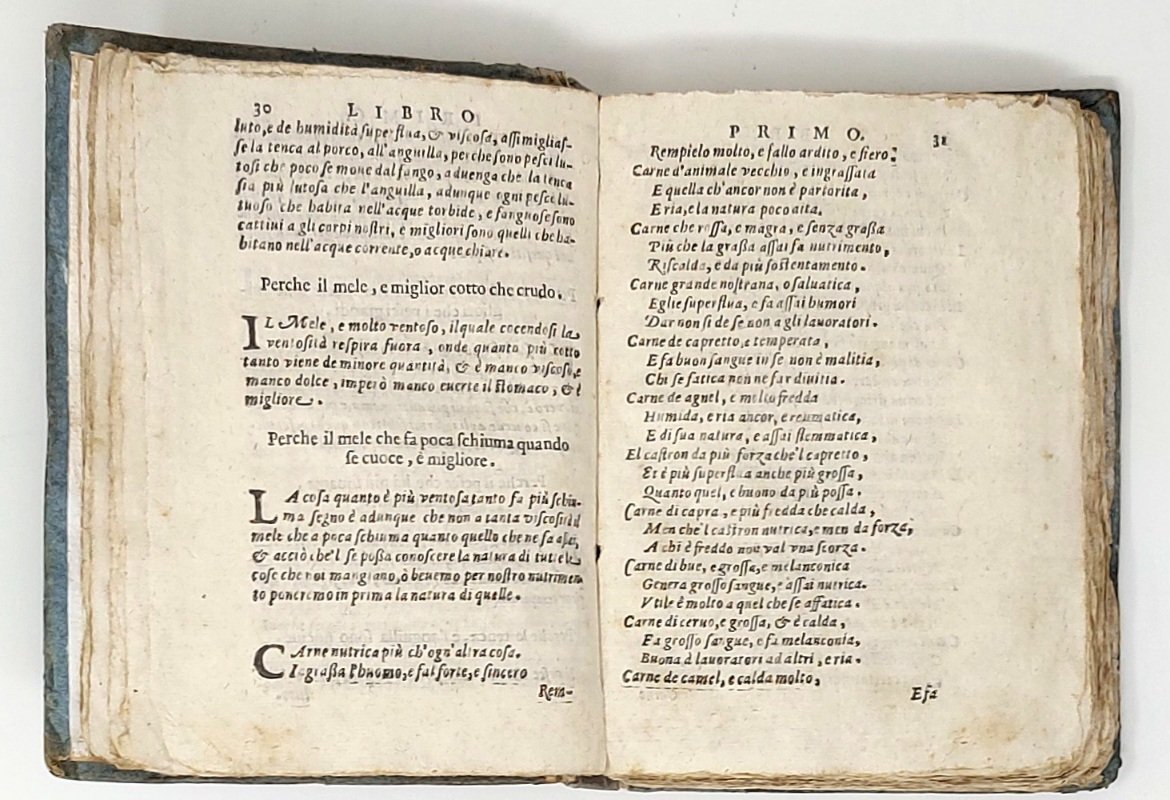 30 LIBRO
luto, e de humidità superflua, & viscosa, assimigliaſ-
ſe la tenca al porco, all'anguilla, perche ſono peſci lu-
toſi che poco ſe moue dal fango, aduenga che la tenca
ſia più lutoſa che l'anguilla, adunque ogni peſce lu-
tuoſo che habita nell'acque torbide, e fangoſe ſono
cattiui a gli corpi noſtri, e migliori ſono quelli che ha-
bitano nell'acque corrente, o acque chiare.
Perche il mele, e miglior cotto che crudo.
IL Mele, e molto ventoſo, il quale cocendoſi la
ventoſità reſpira fuora, onde quanto più cotto
tanto viene de minore quantità, & è manco viſcoſo, e
manco dolce, imperò manco euerte il ſtomaco, & è
migliore.
Perche il mele che fa poca ſchiuma quando
ſe cuoce, è migliore.
LA coſa quanto è più ventoſa tanto fa più ſchiu-
ma ſegno è adunque che non a tanta viſcoſità il
mele che a poca ſchiuma quanto quello che ne fa aſſai,
& acciò che'l ſe poßa conoſcere la natura di tutte le
coſe che noi mangiano, ò beuemo per noſtro nutrimen
to poneremo in prima la natura di quelle.
CArne nutrica più ch'ogn'altra coſa.
Ingraßa l'huomo, e fal forte, e ſincero
Rem-
PRIMO. 31
Rempielo molto, e fallo ardito, e fiero:
Carne d'animale vecchio, e ingraſſata
E quella ch'ancor non è partorita,
E ria, e la natura poco aita.
Carne che roſſa, e magra, e ſenza graßa
Più che la graßa aſſai fa nutrimento,
Riſcalda, e da più ſoſtentamento.
Carne grande noſtrana, o ſaluatica,
Eglie ſuperflua, e fa aſſai humori
Dar non ſi de ſe non a gli lauoratori.
Carne de capretto, e temperata,
E fa buon ſangue in ſe non è malitia,
Chi ſe fatica non ne far diuitia.
Carne de agnel, e molto fredda
Humida, e ria ancor, e reumatica,
E di ſua natura, e aſſai flemmatica,
El caſtron da più forza che'l capretto,
Et è più ſuperflua anche più groſſa,
Quanto quel, e buono da più poſſa.
Carne di capra, e più fredda che calda,
Men che'l caſtron nutrica, e men da forza,
A chi è freddo non val vna ſcorza.
Carne di bue, e groſſa, e melanconica
Genera groſſo ſangue, e aſſai nutrica.
Vtile è molto a quel che ſe affatica.
Carne di ceruo, e groſſa, & è calda,
Fa groſſo ſangue, e fa melanconia,
Buona à lauoratori ad altri, e ria.
Carne de camel, e calda molto,
E fa